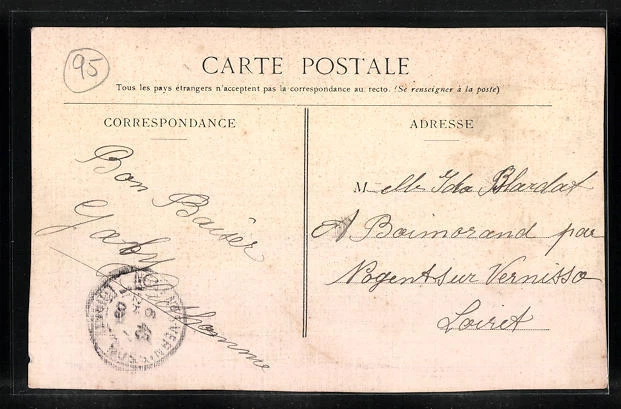 95
CARTE POSTALE
Tous les pays étrangers n'acceptent pas la correspondance au recto. (Se renseigner à la poste)
CORRESPONDANCE
ADRESSE
Bon Baiser
Gaby
M elle Ida Blardat
A Boimorand par
Nogent sur Vernisso
Loiret